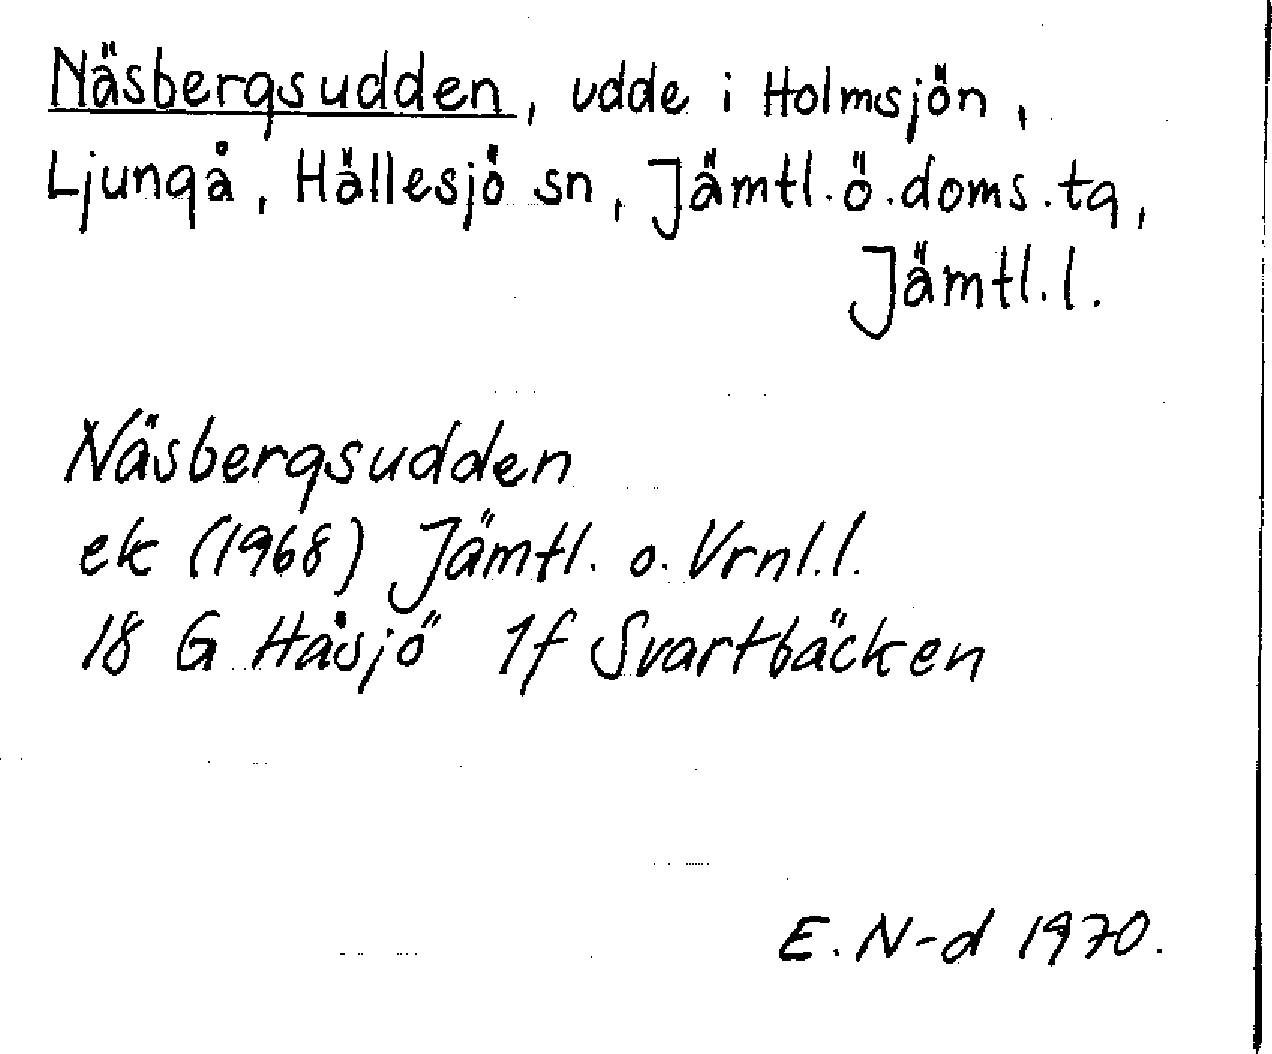 Näsbergsudden, udde i Holmsjön,
Ljungå, Hällesjö sn, Jämtl.ö.doms.tg,
Jämtl.l.
Näsbergsudden
ek (1968) Jämtl. o. Vrnl.l.
18 G Håsjö 1f Svartbäcken
E. N-d 1970.